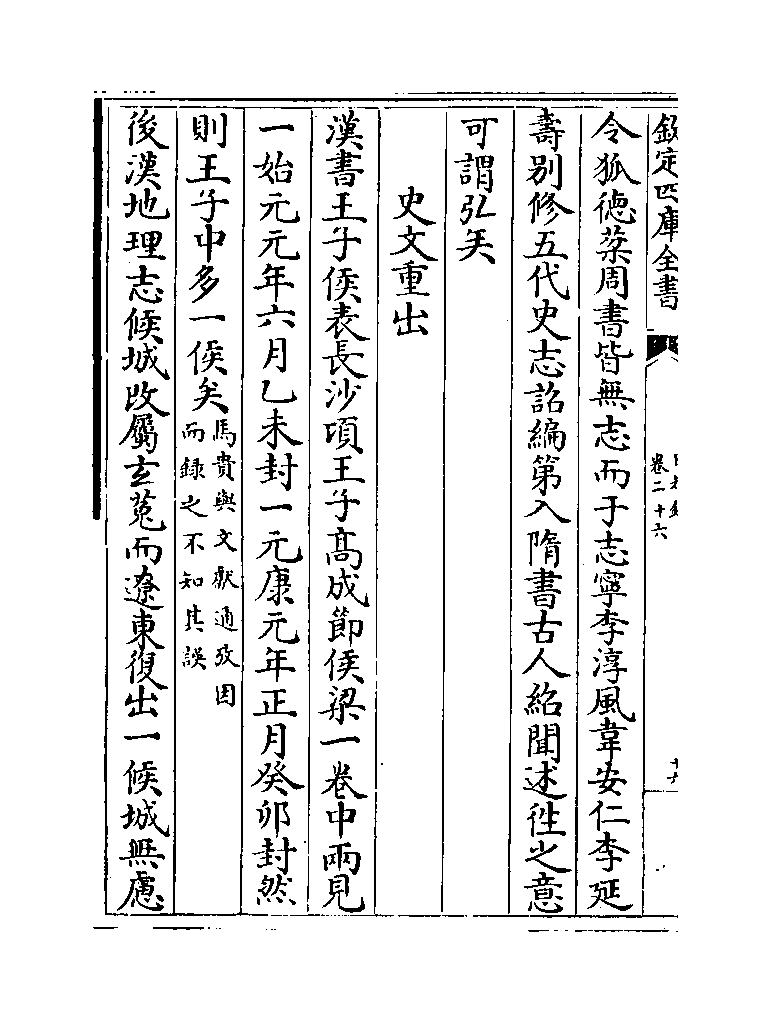 欽定四庫全書
卷二十六
令狐德棻周書皆無志而于志寧李淳風韋安仁李延
壽別修五代史志詔編第入隋書古人紹聞述徃之意
可謂弘矣
史文重出
漢書王子侯表長沙頃王子髙成節侯梁一卷中兩見
一始元元年六月乙未封一元康元年正月癸卯封然
則王子中多一侯矣馬貴與文獻通攷因
而錄之不知其誤
後漢地理志候城改屬玄菟而遼東復出一候城無慮